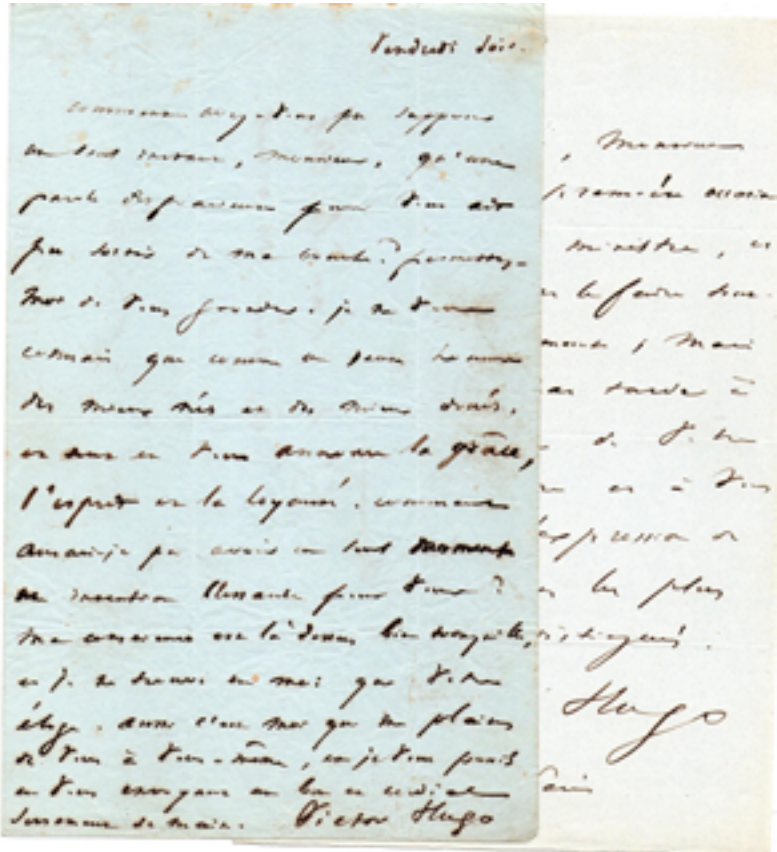 Vendredi soir.
comment avez-vous pu supposer
un seul instant, monsieur, qu'une
parole disgracieuse pour vous ait
pu sortir de ma bouche? permettez-
moi de vous gronder. je ne vous
connais que comme un jeune homme
des mieux nés et des mieux doués,
en vous la grâce,
l'esprit et la loyauté. comment
aurais-je pu avoir un seul moment
une intention blessante pour vous?
ma conscience est là-dessus bien tranquille,
et je ne trouve en moi que votre
éloge. c'est moi qui me plains
de vous à vous-même, et je vous punis
en vous envoyant un bon et cordial
serrement de main. Victor Hugo
, Monsieur
première occasion
ministre, et
le faire
mais
tarde à
de votre
et à vous
l'expression de
les plus
distingués.
Hugo